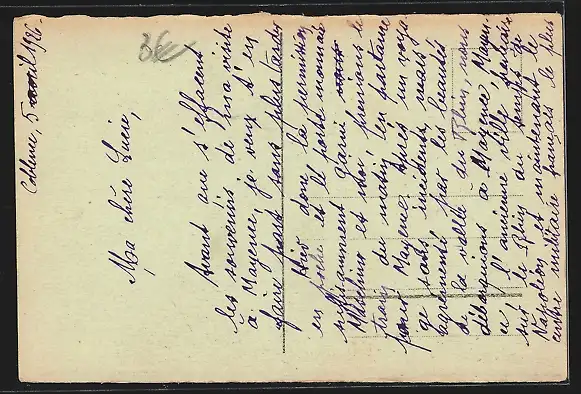 Coblence, 5 avril 1926
Ma chère Lucie,
Avant que s'effacent
les souvenirs de ma visite
à Mayence, je veux t'en
faire part sans plus tarder
Hier donc la permission
en poche et le porte monnaie
suffisamment garni
et moi prenions le
du matin en partance
pour Mayence. Après un voya-
ge sans incidents, mais
agrémenté par les beautés
de la vallée du Rhin, nous
débarquions à Mayence. Mayen-
ce l'ancienne ville
sur le Rhin du temps de
Napoléon et maintenant le
centre militaire français le plus